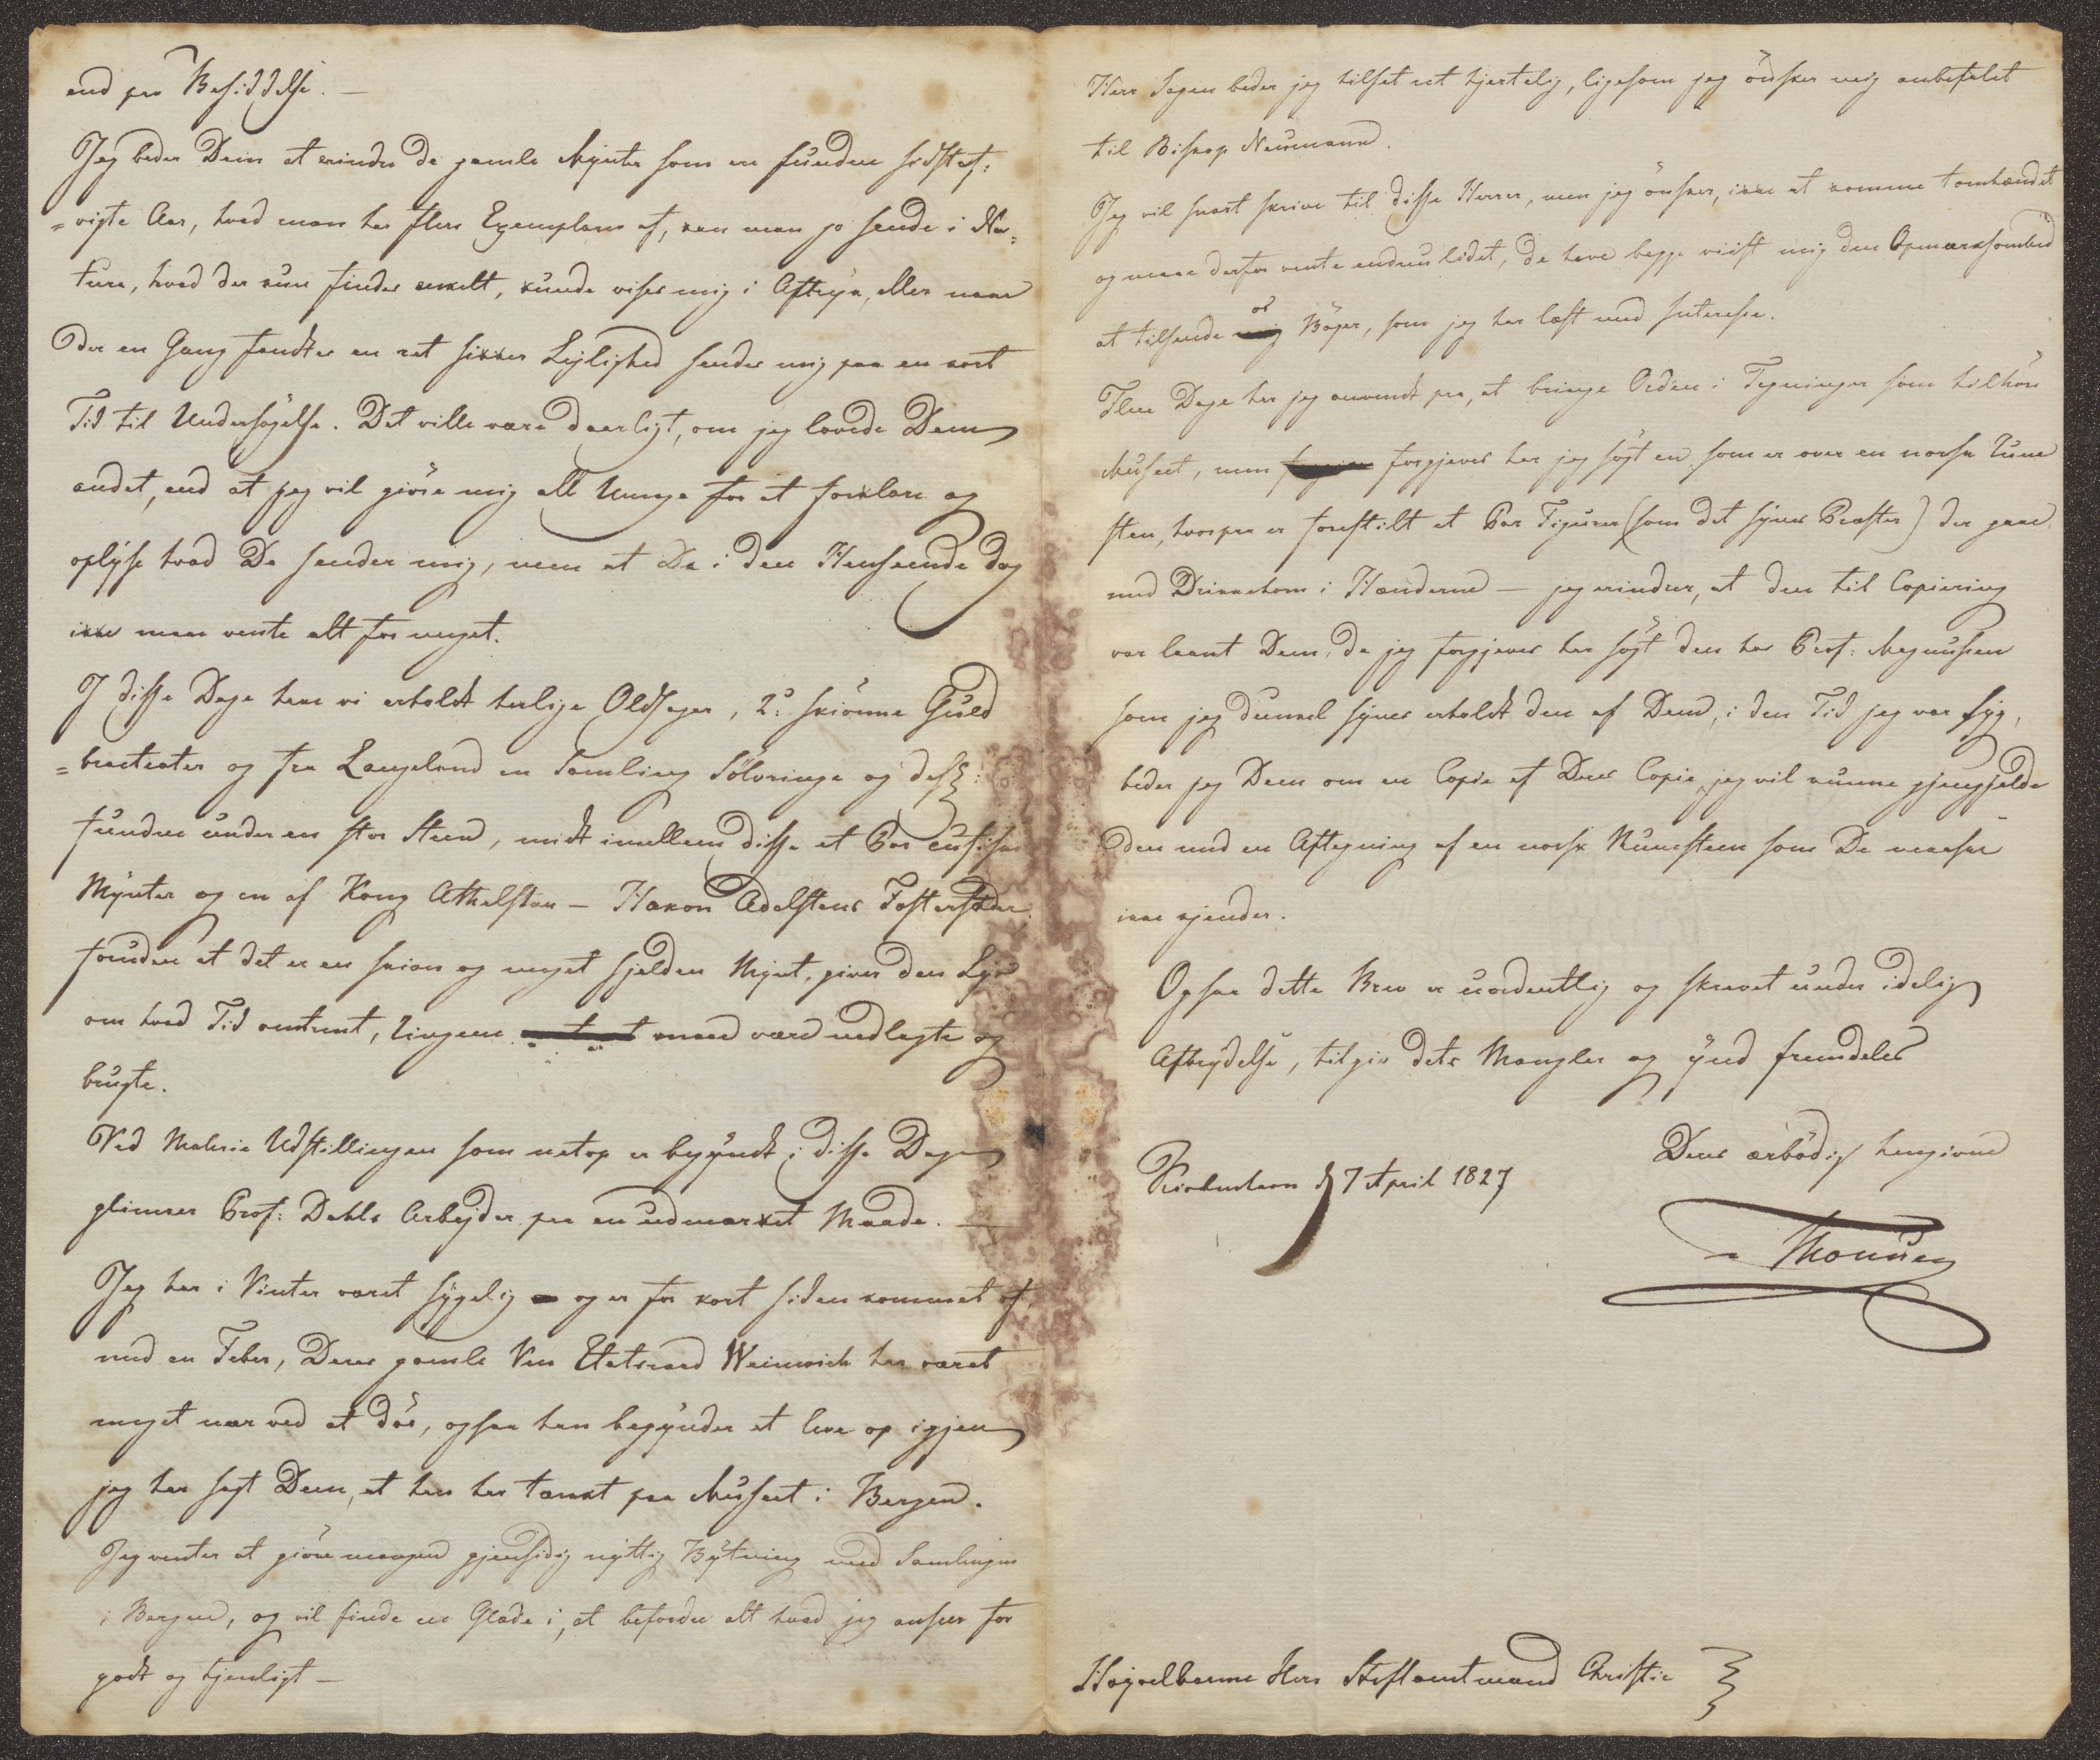 end paa Besiddelse. —
Jeg beder Dem at erindre de gamle Mynter som ere fundne sidstaf=
=vigte Aar, hvad man har flere Exemplarer af, kan man jo sende i Na=
tura, hvad der kun findes enkelt, kunde vises mig i Aftryk, eller naar
der en Gang fandtes en ret sikker Lejlighed sendes mig paa en kort
Tid til Undersögelse. Det ville være daarligt, om jeg lovede Dem
andet, end at jeg vil giöre mig all Umage for at forklare og
oplyse hvad De sender mig, men at De i den Henseende dog
ikke maae vente alt for meget.
I disse Dage have vi erholdt herlige Oldsager, 2: skiönne Guld
=bracteater og fra Langeland en Samling Sölvringe og desl:
fundne under en stor Steen, midt imellem disse et Par cufiske
Mynter og en af Kong Athelstan — Hakon Adelstens Fosterfader
foruden at det er en skiön og meget sjelden Mynt, giver den Lys
om hvad Tid omtrent, Ringene maae være nedlagte og
brugte.
Ved Malerie Udstillingen som netop er begyndt i disse Dage
glimrer Prof: Dahls Arbejder paa en udmærket Maade. —
Jeg har i Vinter været sygelig og er for kort siden kommet af
med en Feber, Deres gamle Ven Etatsraad Weinwich har været
meget nær ved at döe, ogsaa han begynder at leve op igjen
jeg har sagt Dem, at han har tænkt paa Museet i Bergen.
Jeg venter at giöre mangen gjensidig nyttig Bytning med Samlingen
i Bergen, og vil finde en Glæde i, at befordre alt hvad jeg anseer for
godt og tjenligt —
Herr Sagen beder jeg hilset ret hjertelig, ligesom jeg önsker mig anbefalet
til Biskop Neumann.
Jeg vil snart skrive til disse Herrer, men jeg önsker, ikke at komme tomhændet
og maae derfor vente endnu lidet, de have begge viist mig den Opmærksomhed
at tilsende mig os Böger, som jeg har læst med Interesse.
Flere Dage har jeg anvendt paa, at bringe Orden i Tegninger som tilhöre
Museet, men forgjeves har jeg sögt en som er over en norsk Rune
steen, hvorpaa er forestilt et Par Figurer (som det synes Præster) der gaae
med Drikkehorn i Hænderne — jeg erindrer, at den til Copiering
var laant Dem, da jeg forgjeves har sögt den hos Prof: Magnusen
som jeg dunkel synes erholdt den af Dem, i den Tid jeg var syg,
beder jeg Dem om en Copie af Deres Copie, jeg vil kunne gjengjelde
den med en Aftegning af en norsk Runesteen som De maaskee
ikke kjender.
Ogsaa dette Brev er uordentlig og skrevet under idelig
Afbrydelse, tilgiv dets Mangler og ynd fremdeles
Deres ærbödig hengivne
Kiöbenhavn d 7 April 1827
Thomsen
Höjvelbaarne Herr Stiftamtmand Christie